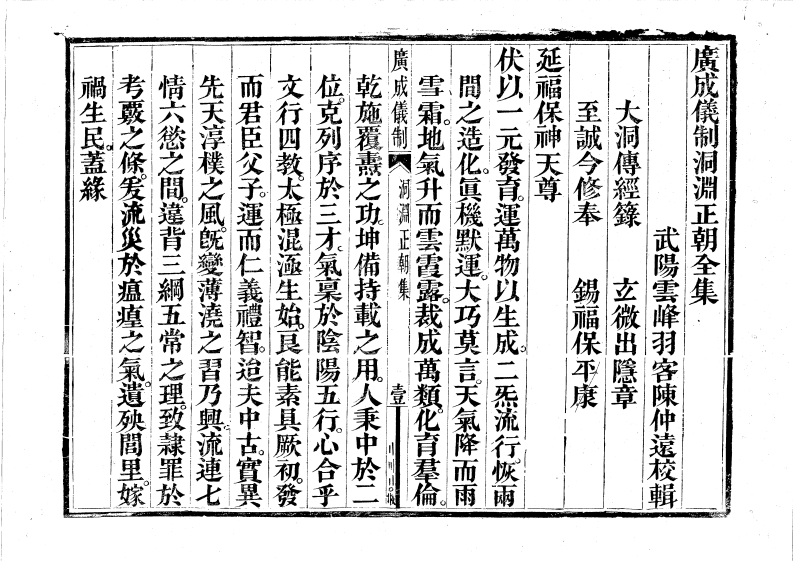 廣成儀制洞淵正朝全集
武陽雲峰羽客陳仲遠校輯
大洞傳經籙　玄微出隱章
至誠今修奉　錫福保平康
延福保神天尊
伏以一元發育。運萬物以生成。二炁流行。恢兩
間之造化。眞機默運。大巧莫言。天氣降而雨
雪霜。地氣升而雲霞露。裁成萬類。化育羣倫。
廣成儀制　洞淵正朝集　壹
乾施覆燾之功。坤備持載之用。人秉中於二
位。克列序於三才。氣稟於陰陽五行。心合乎
文行四教。太極混涵生始。良能素具厥初。發
而君臣父子。運而仁義禮智。迨夫中古。實異
先天淳樸之風。旣變薄澆之習乃興。流連七
情六慾之間。違背三綱五常之理。致隸罪於
考覈之條。爰流災於瘟㾮之氣。遺殃閭里。嫁
禍生民。蓋緣